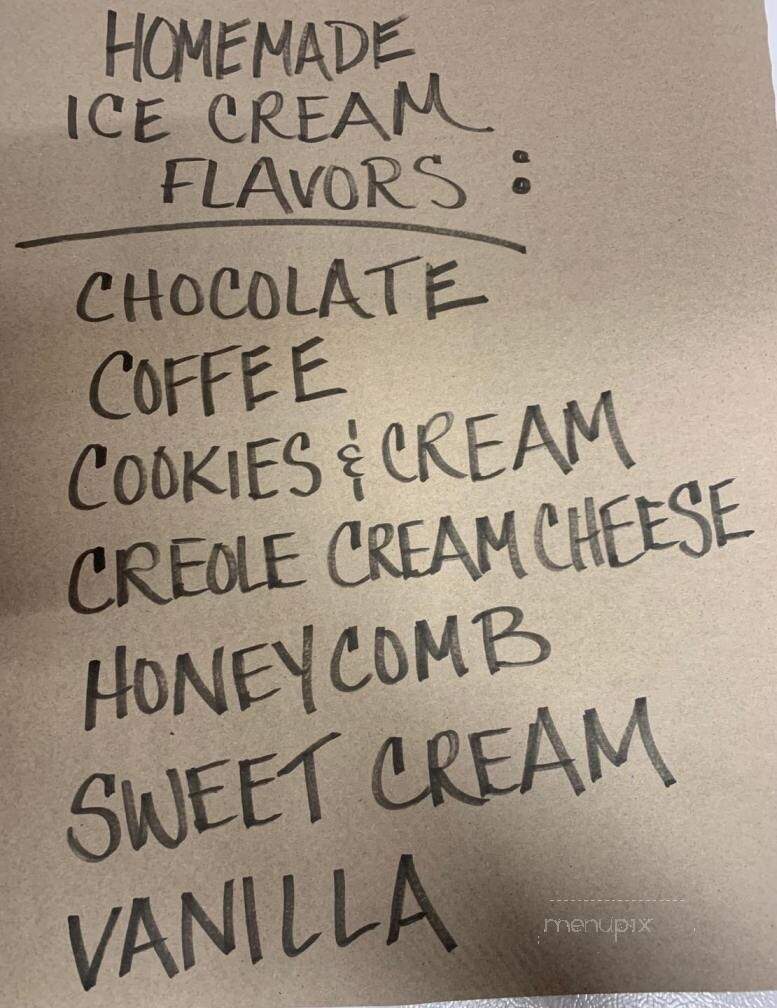 HOMEMADE
ICE CREAM
FLAVORS :
CHOCOLATE
COFFEE
COOKIES & CREAM
CREOLE CREAM CHEESE
HONEYCOMB
SWEET CREAM
VANILLA
menupix